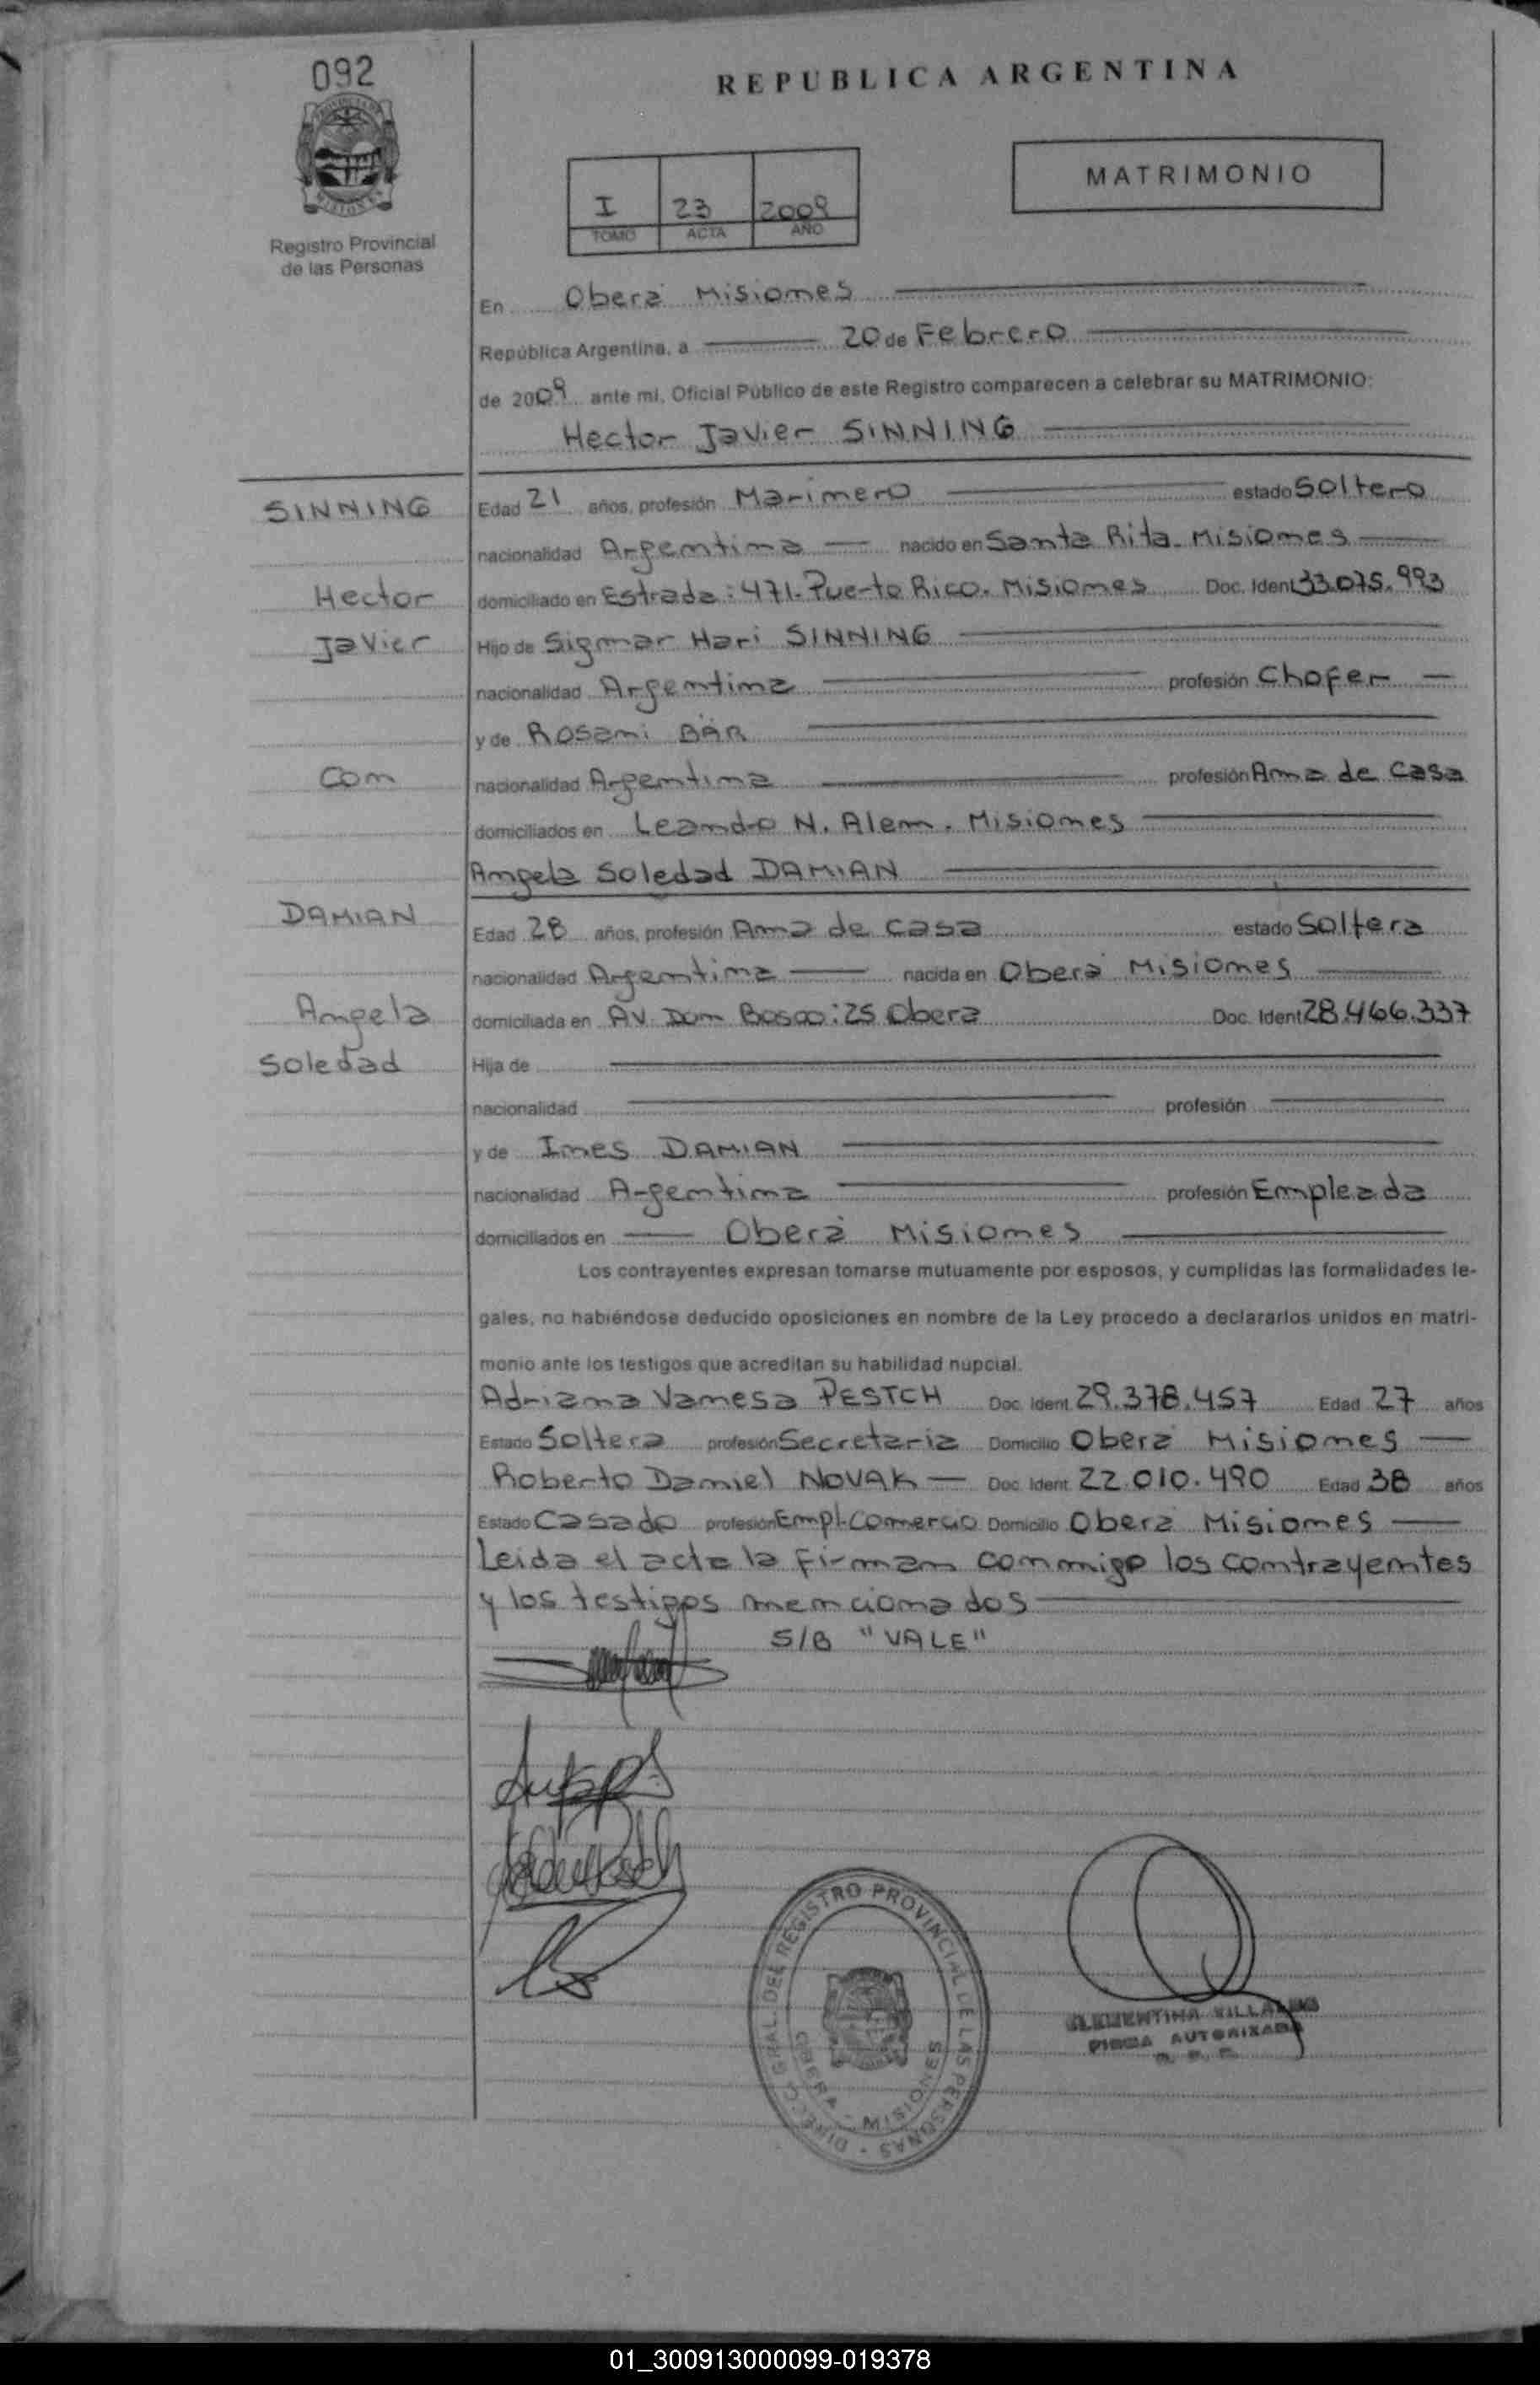 092
REPUBLICA ARGENTINA
MATRIMONIO
I 23 2009
TOMO ACTA AÑO
Registro Provincial
de las Personas
En Oberá Misiones
República Argentina, a 20 de Febrero
de 2009 ante mi, Oficial Público de este Registro comparecen a celebrar su MATRIMONIO:
Hector Javier SINNING
SINNING Edad 21 años, profesión Marinero estado Soltero
nacionalidad Argentina nacido en Santa Rita. Misiones
Hector domiciliado en Estrada: 471. Puerto Rico. Misiones Doc. Ident 33.075.993
Javier Hijo de Sigmar Hari SINNING
nacionalidad Argentina profesión Chofer
y de Rosani BÄR
Con nacionalidad Argentina profesión Ama de Casa
domiciliados en Leandro N. Alem. Misiones
Angela Soledad DAMIAN
DAMIAN Edad 28 años, profesión Ama de casa estado Soltera
nacionalidad Argentina nacida en Oberá Misiones
Angela domiciliada en AV. Don Bosco: 25 Obera Doc. Ident 28.466.337
Soledad Hija de
nacionalidad profesión
y de Ines DAMIAN
nacionalidad Argentina profesión Empleada
domiciliados en Oberá Misiones
Los contrayentes expresan tomarse mutuamente por esposos, y cumplidas las formalidades le-
gales, no habiéndose deducido oposiciones en nombre de la Ley procedo a declararlos unidos en matri-
monio ante los testigos que acreditan su habilidad nupcial.
Adriana Vanesa PESTCH Doc. Ident. 29.378.457 Edad 27 años
Estado Soltera profesión Secretaria Domicilio Oberá Misiones
Roberto Daniel NOVAK Doc. Ident. 22.010.490 Edad 38 años
Estado Casado profesión Empl.Comercio Domicilio Oberá Misiones
Leida el acta la firman conmigo los contrayentes
y los testigos mencionados
S/B "VALE"
DIRECC. GRAL. DEL REGISTRO PROVINCIAL DE LAS PERSONAS
OBERA - MISIONES
CLEMENTINA
FIRMA AUTORIZADA
01_300913000099-019378